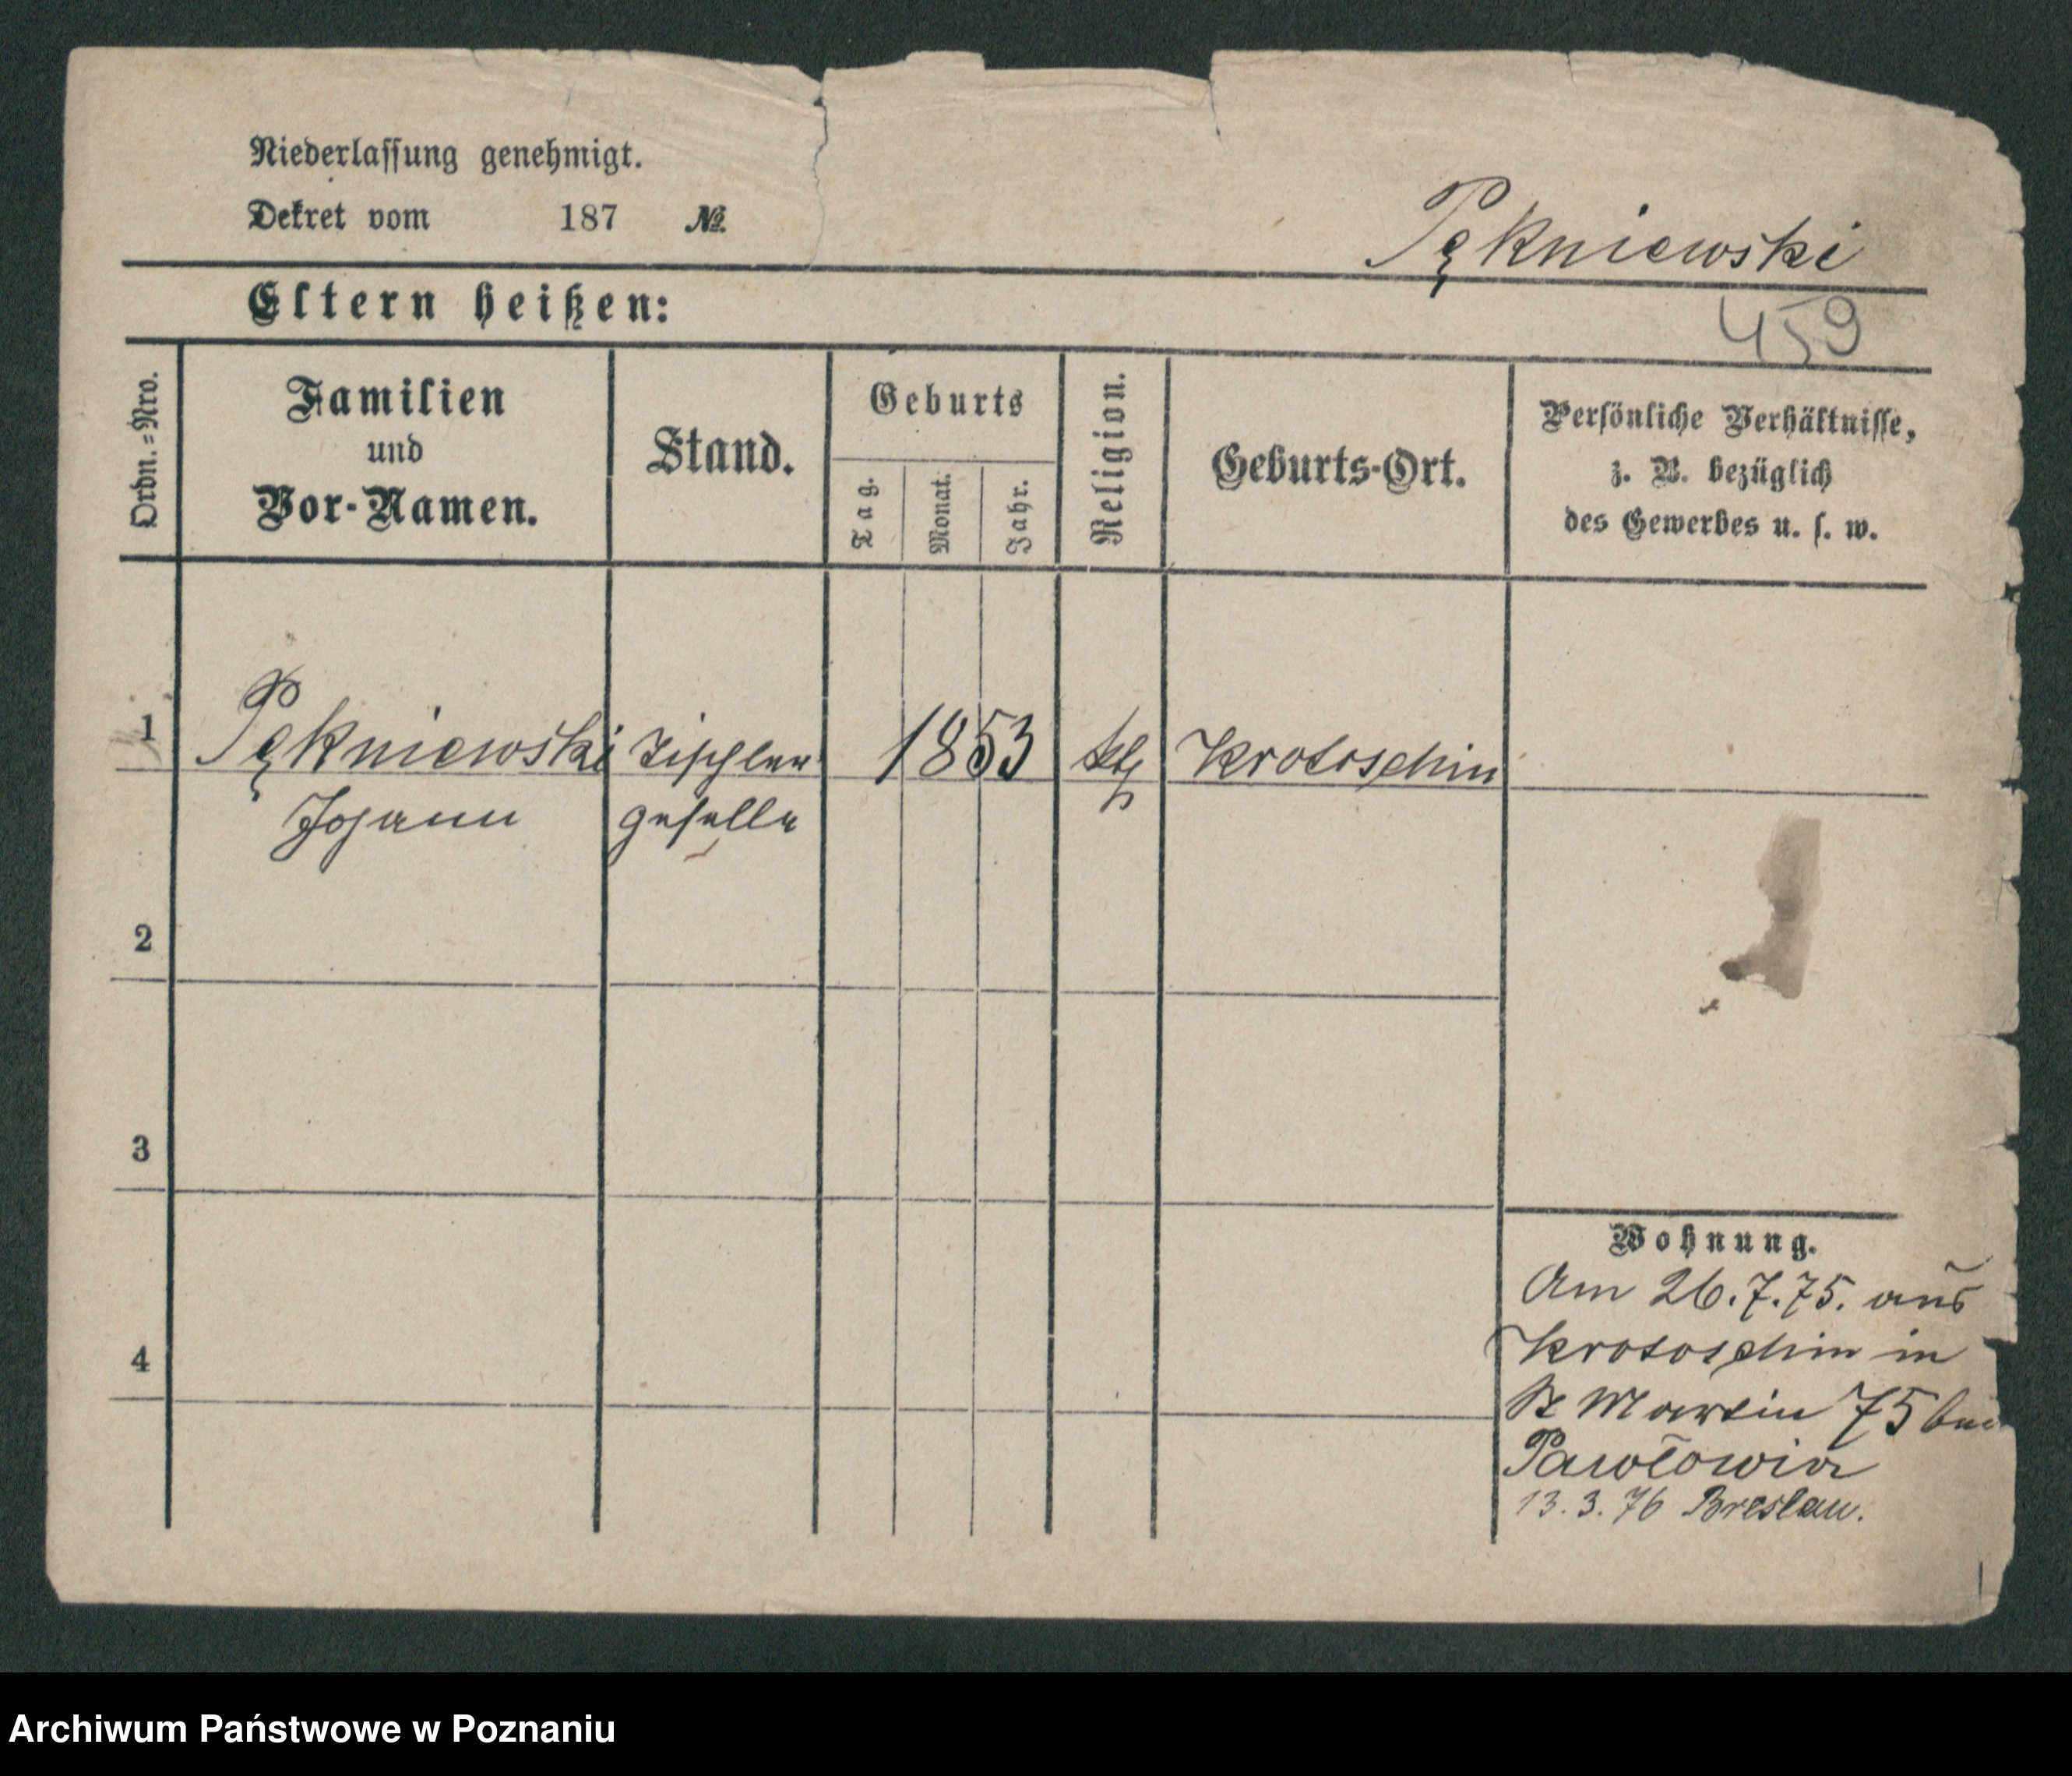 Niederlassung genehmigt.
Dekret vom 187 No.
Pękniewski
Eltern heißen:
459
Ordn.=Nro.
Familien
und
Vor-Namen.
Stand.
Geburts
Tag.
Monat.
Jahr.
Religion.
Geburts-Ort.
Persönliche Verhältnisse,
z. B. bezüglich
des Gewerbes u. s. w.
1 Pękniewski Tischler 1853 kth Krotoschin
Johann geselle
2
3
Wohnung.
Am 26.7.75. aus
4
Krotoschin in
St Martin 75 bei
Pawłowia
13.3.76 Breslau.
Archiwum Państwowe w Poznaniu